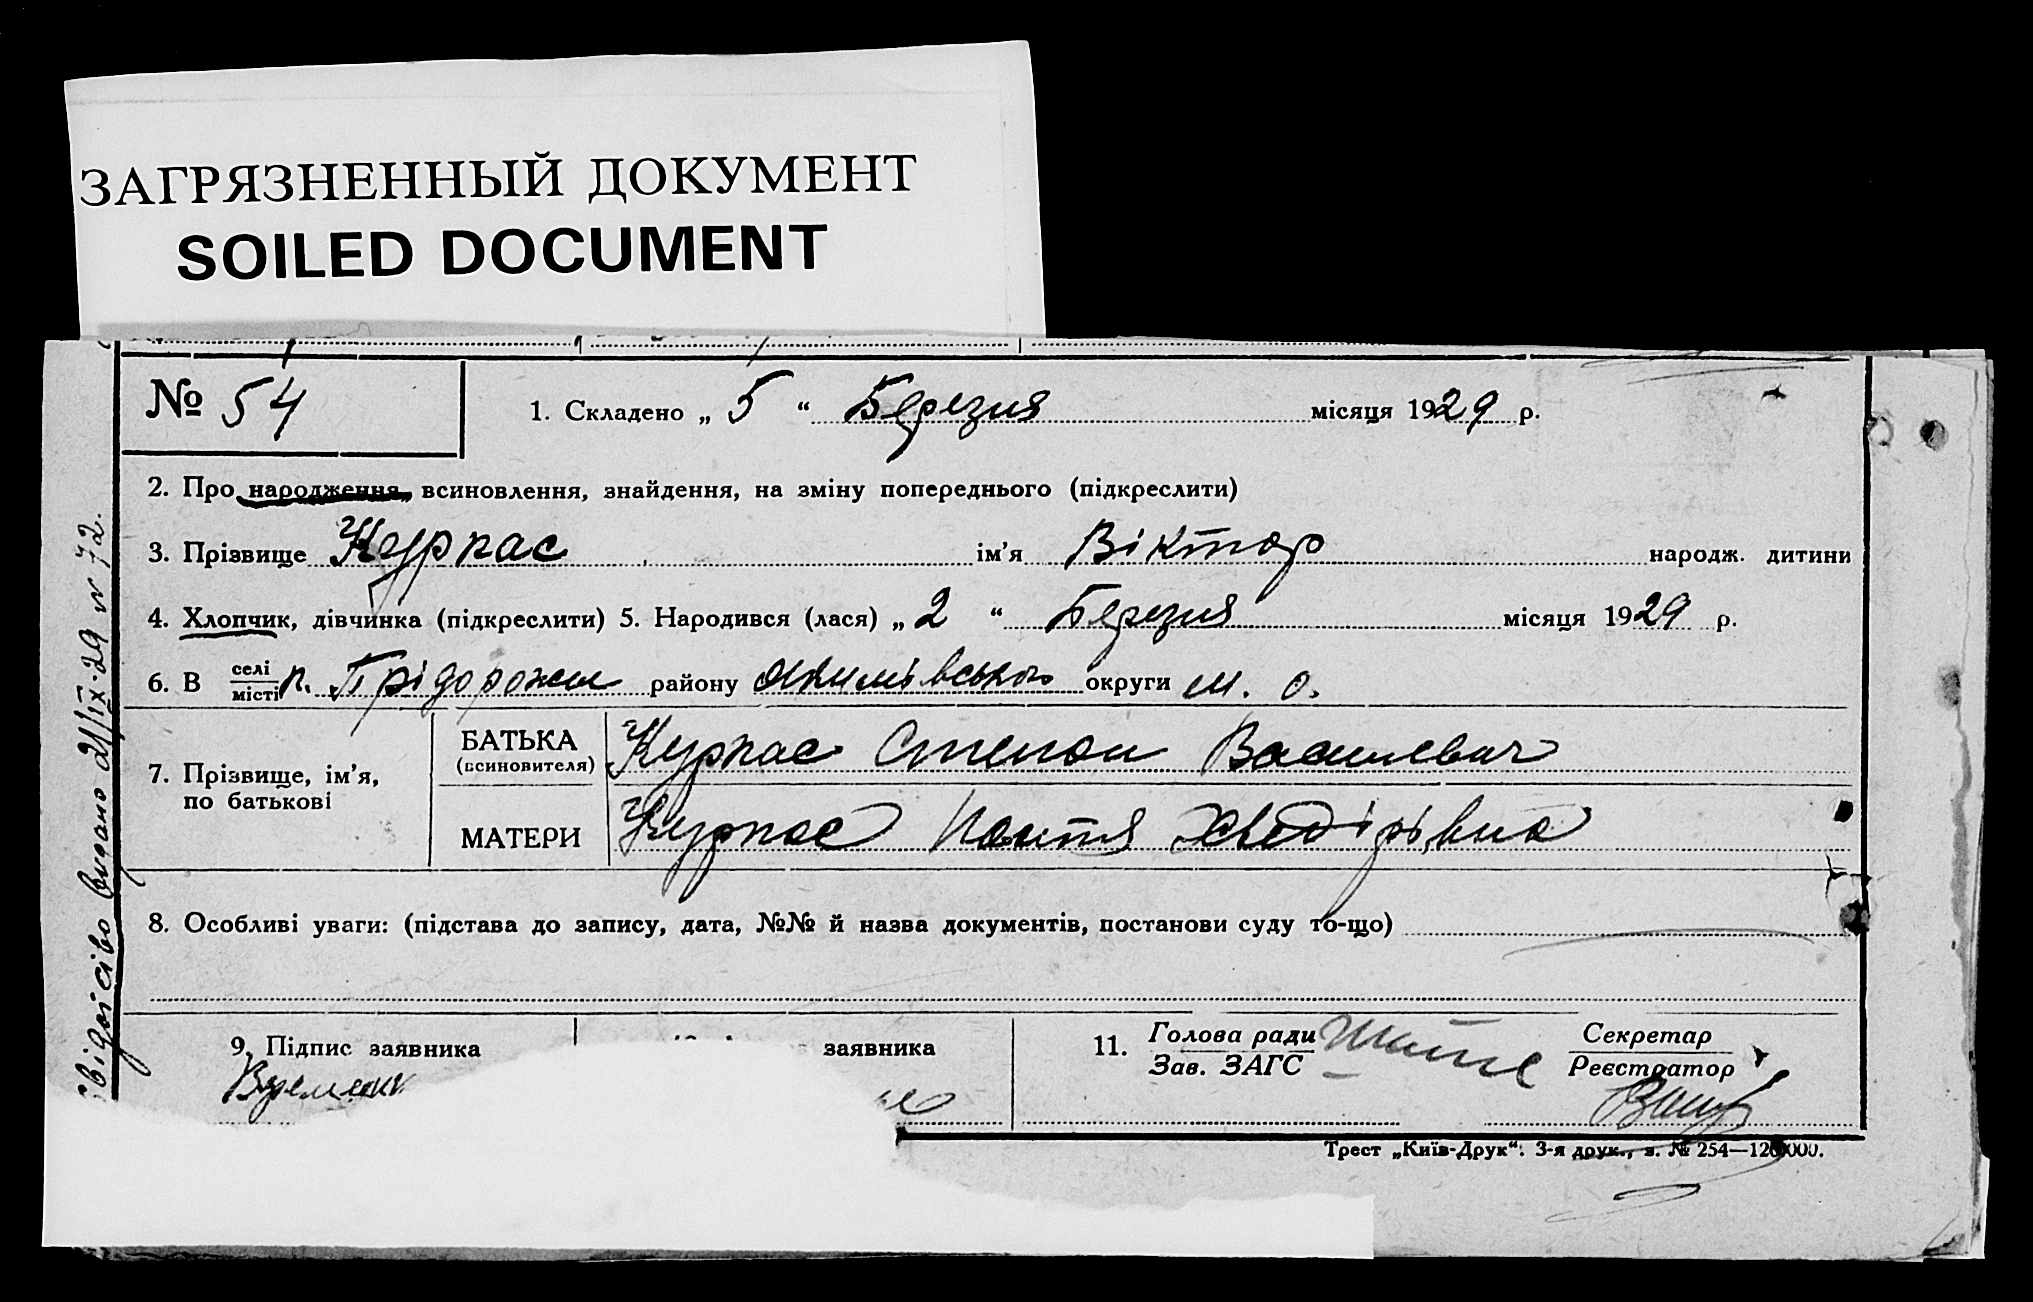 ЗАГРЯЗНЕННЫЙ ДОКУМЕНТ
SOILED DOCUMENT
№ 54
1. Складено „ 5 “ Березня місяця 1929 р.
2. Про народження, всиновлення, знайдення, на зміну попереднього (підкреслити)
3. Прізвище Курпас ім’я Віктор народж. дитини
4. Хлопчик, дівчинка (підкреслити) 5. Народився (лася) „ 2 “ Березня місяця 1929 р.
6. В селі місті п. Прідорожн району Якимівського округи м. о.
7. Прізвище, ім’я, по батькові
БАТЬКА (всиновителя) Курпас Степан Васильевич
МАТЕРИ Курпас Настя Хведірівна
8. Особливі уваги: (підстава до запису, дата, №№ й назва документів, постанови суду то-що)
9. Підпис заявника
заявника
11. Голова ради
Зав. ЗАГС
Секретар
Реєстратор
Трест „Київ-Друк“: 3-я друк., з. № 254—120000.
Свідоцтво видано 21/IX-29 N 72.